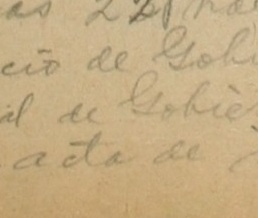 as 22
cio de Gobi
il de Gobie
acta de